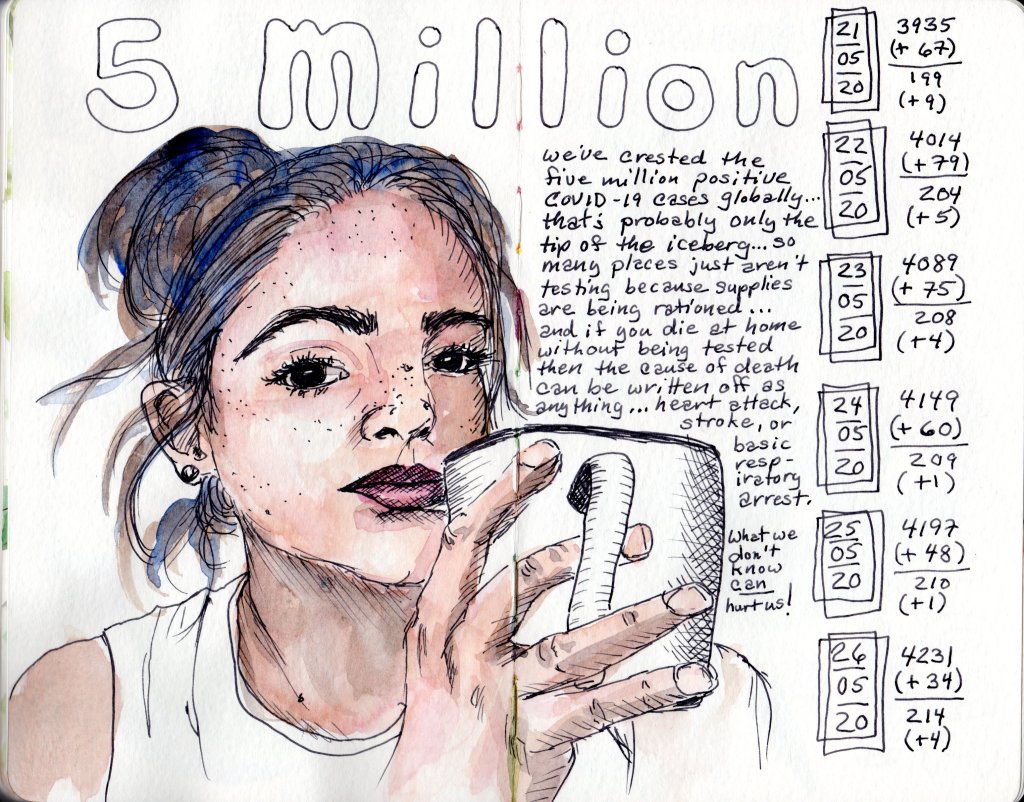 5 Million
we've crested the
five million positive
COVID-19 cases globally...
that's probably only the
tip of the iceberg... so
many places just aren't
testing because supplies
are being rationed...
and if you die at home
without being tested
then the cause of death
can be written off as
anything... heart attack,
stroke, or
basic
resp-
iratory
arrest.
What we
don't
know
can
hurt us!
21
05
20
3935
(+ 67)
199
(+9)
22
05
20
4014
(+79)
204
(+5)
23
05
20
4089
(+ 75)
208
(+4)
24
05
20
4149
(+ 60)
209
(+1)
25
05
20
4197
(+ 48)
210
(+1)
26
05
20
4231
(+ 34)
214
(+4)